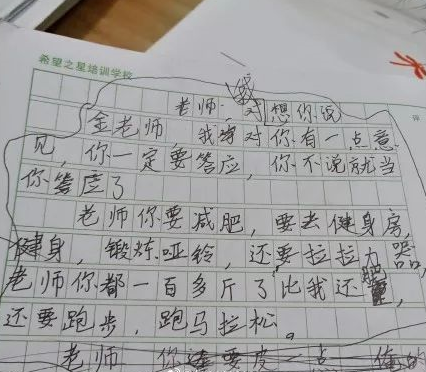 希望之星培训学校
老师,我想你说
金老师 我对你有一点意
见,你一定要答应,你不说就当
你答应了
老师你要减肥,要去健身房,
健身,锻炼哑铃,还要拉拉力器,
老师你都一百多斤了比我还重,
还要跑步,跑马拉松。
老师 你 要皮一点 俺的